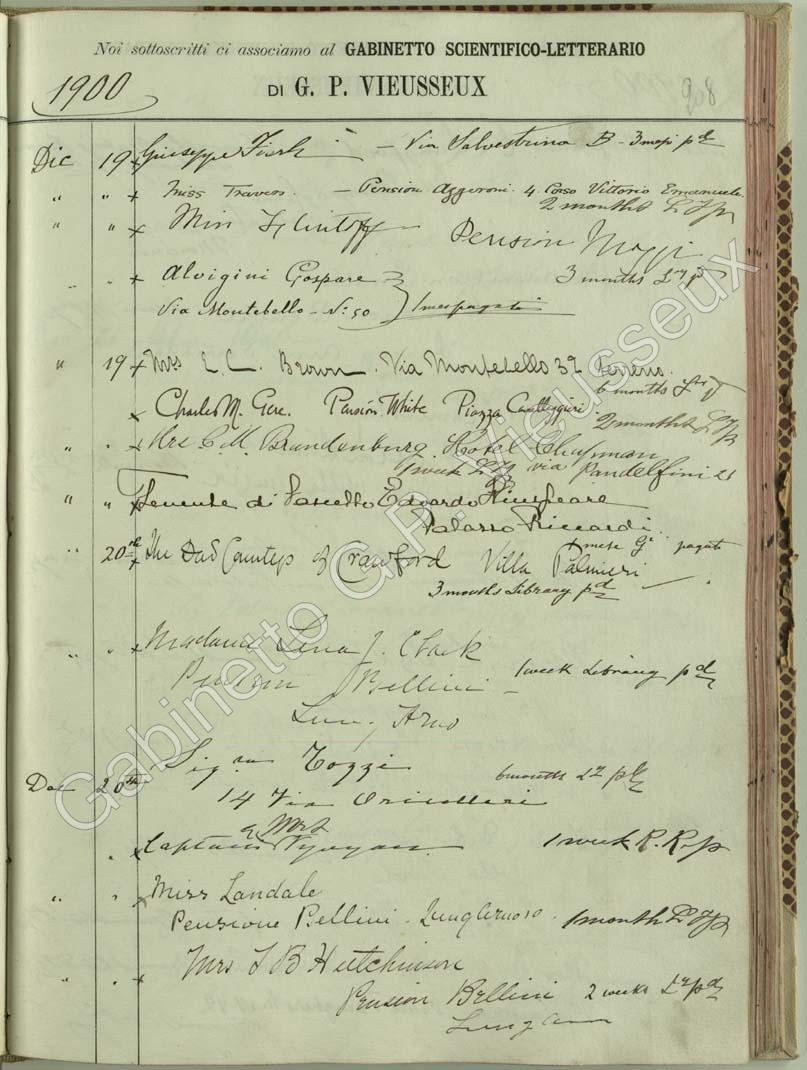 Noi sottoscritti ci associamo al GABINETTO SCIENTIFICO-LETTERARIO
1900
DI G. P. VIEUSSEUX
208
Dic 19 x Giuseppe — Via Salvestrina 3 mesi pd
" " x Miss Travers. — Pension 4 Corso Vittorio Emanuele
2 months
" " x Miss Pension
3 months
" " x Alvigini Gaspare
Via Montebello - No: 50 1 mese pagato
" 19 x Mrs E. C. Brown. Via Montebello 32 terreno.
6 months
x Charles M. Gere. Pension White Piazza Cavalleggieri.
2 months
" " x Mrs C. M. Brandenburg. Hotel Chapman
1 week via Pandolfini 21
" " x Tenente di Vascello Edoardo
Palazzo Riccardi.
1 mese Gi pagato
" 20th x The Countess of Crawford Villa Palmieri
3 months Library pd
" " x Madame Lena J.
Pension Bellini
1 week Library pd
Lun. Arno
Dec 20th Sigra Tozzi
6 months Ly pd
14 Via Oricellari
& Mrs
" x Captain Vyvyan 1 week R. R. p
" " x Miss Landale
Pensione Bellini - 1 month
" " x Mrs Hutchinson
Pension Bellini 2 weeks Ly pd
Gabinetto G.P. Vieusseux